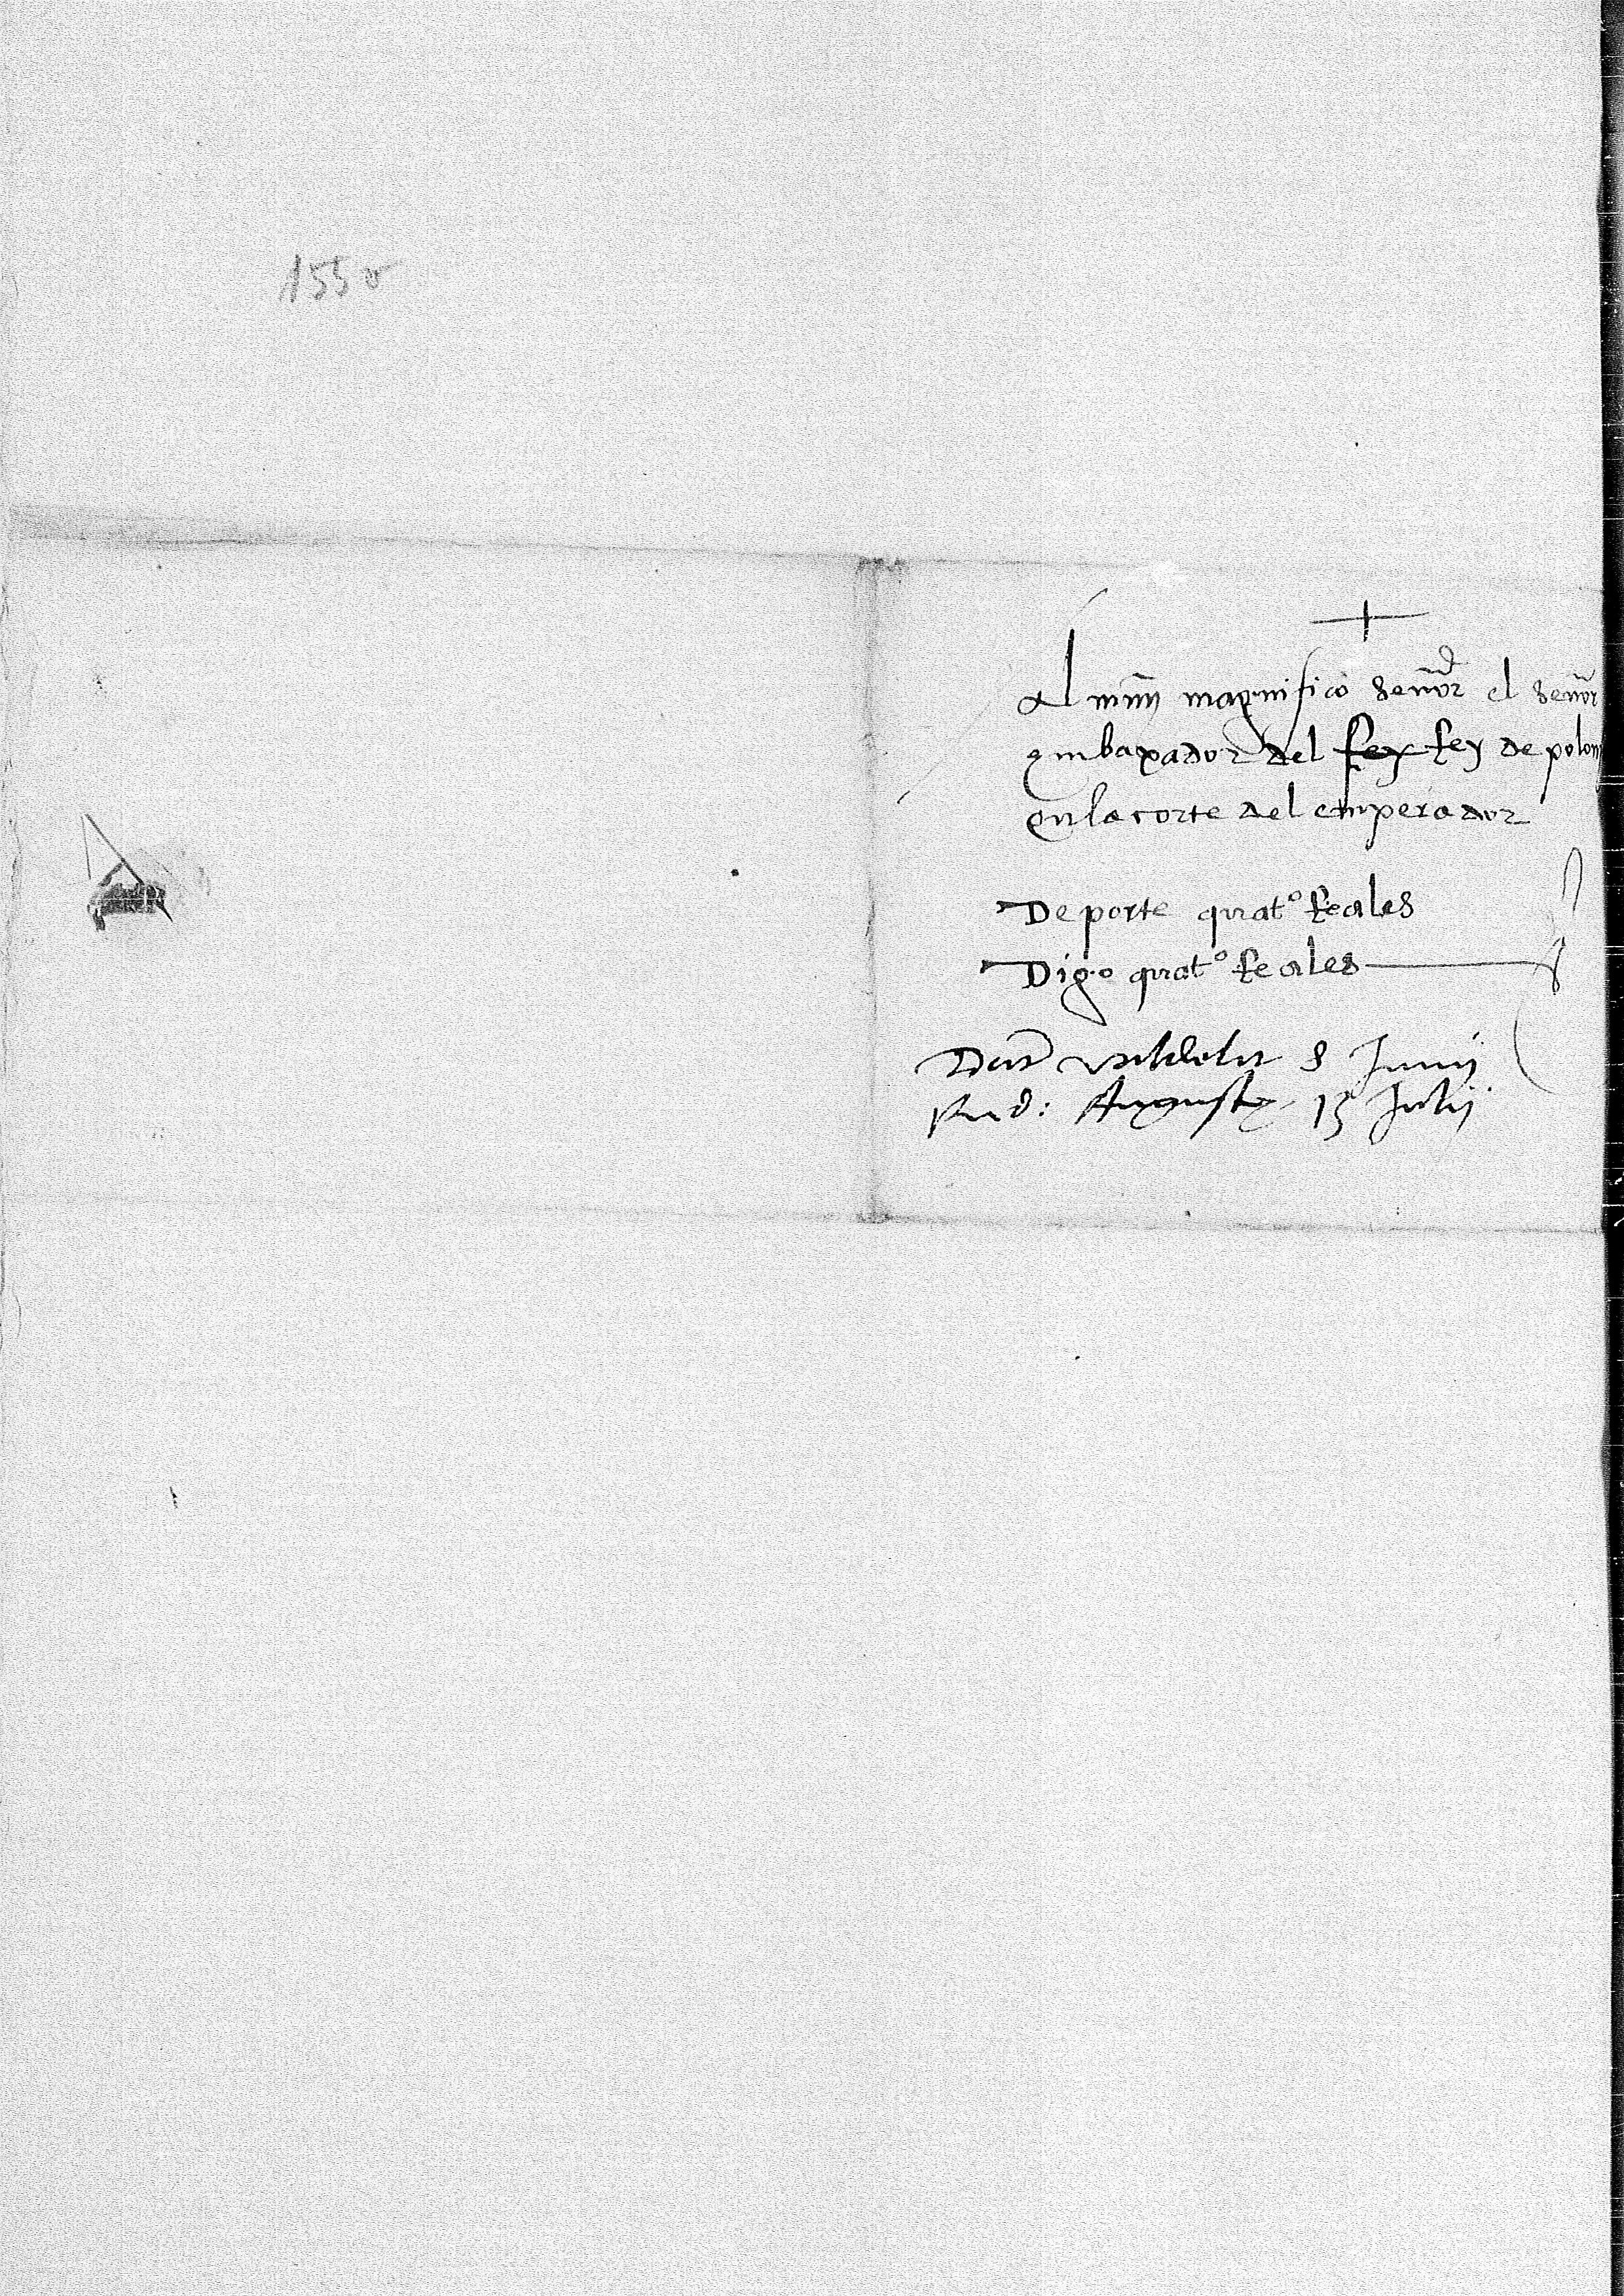 1550
+
Al muy magnifico señor el señor
embaxador del Rey Rey de polon
en la corte del emperador
De porte quat° Reales
Digo quat° Reales
Dat Valdolit 8 Junij
Red: Augustę 15 Julij